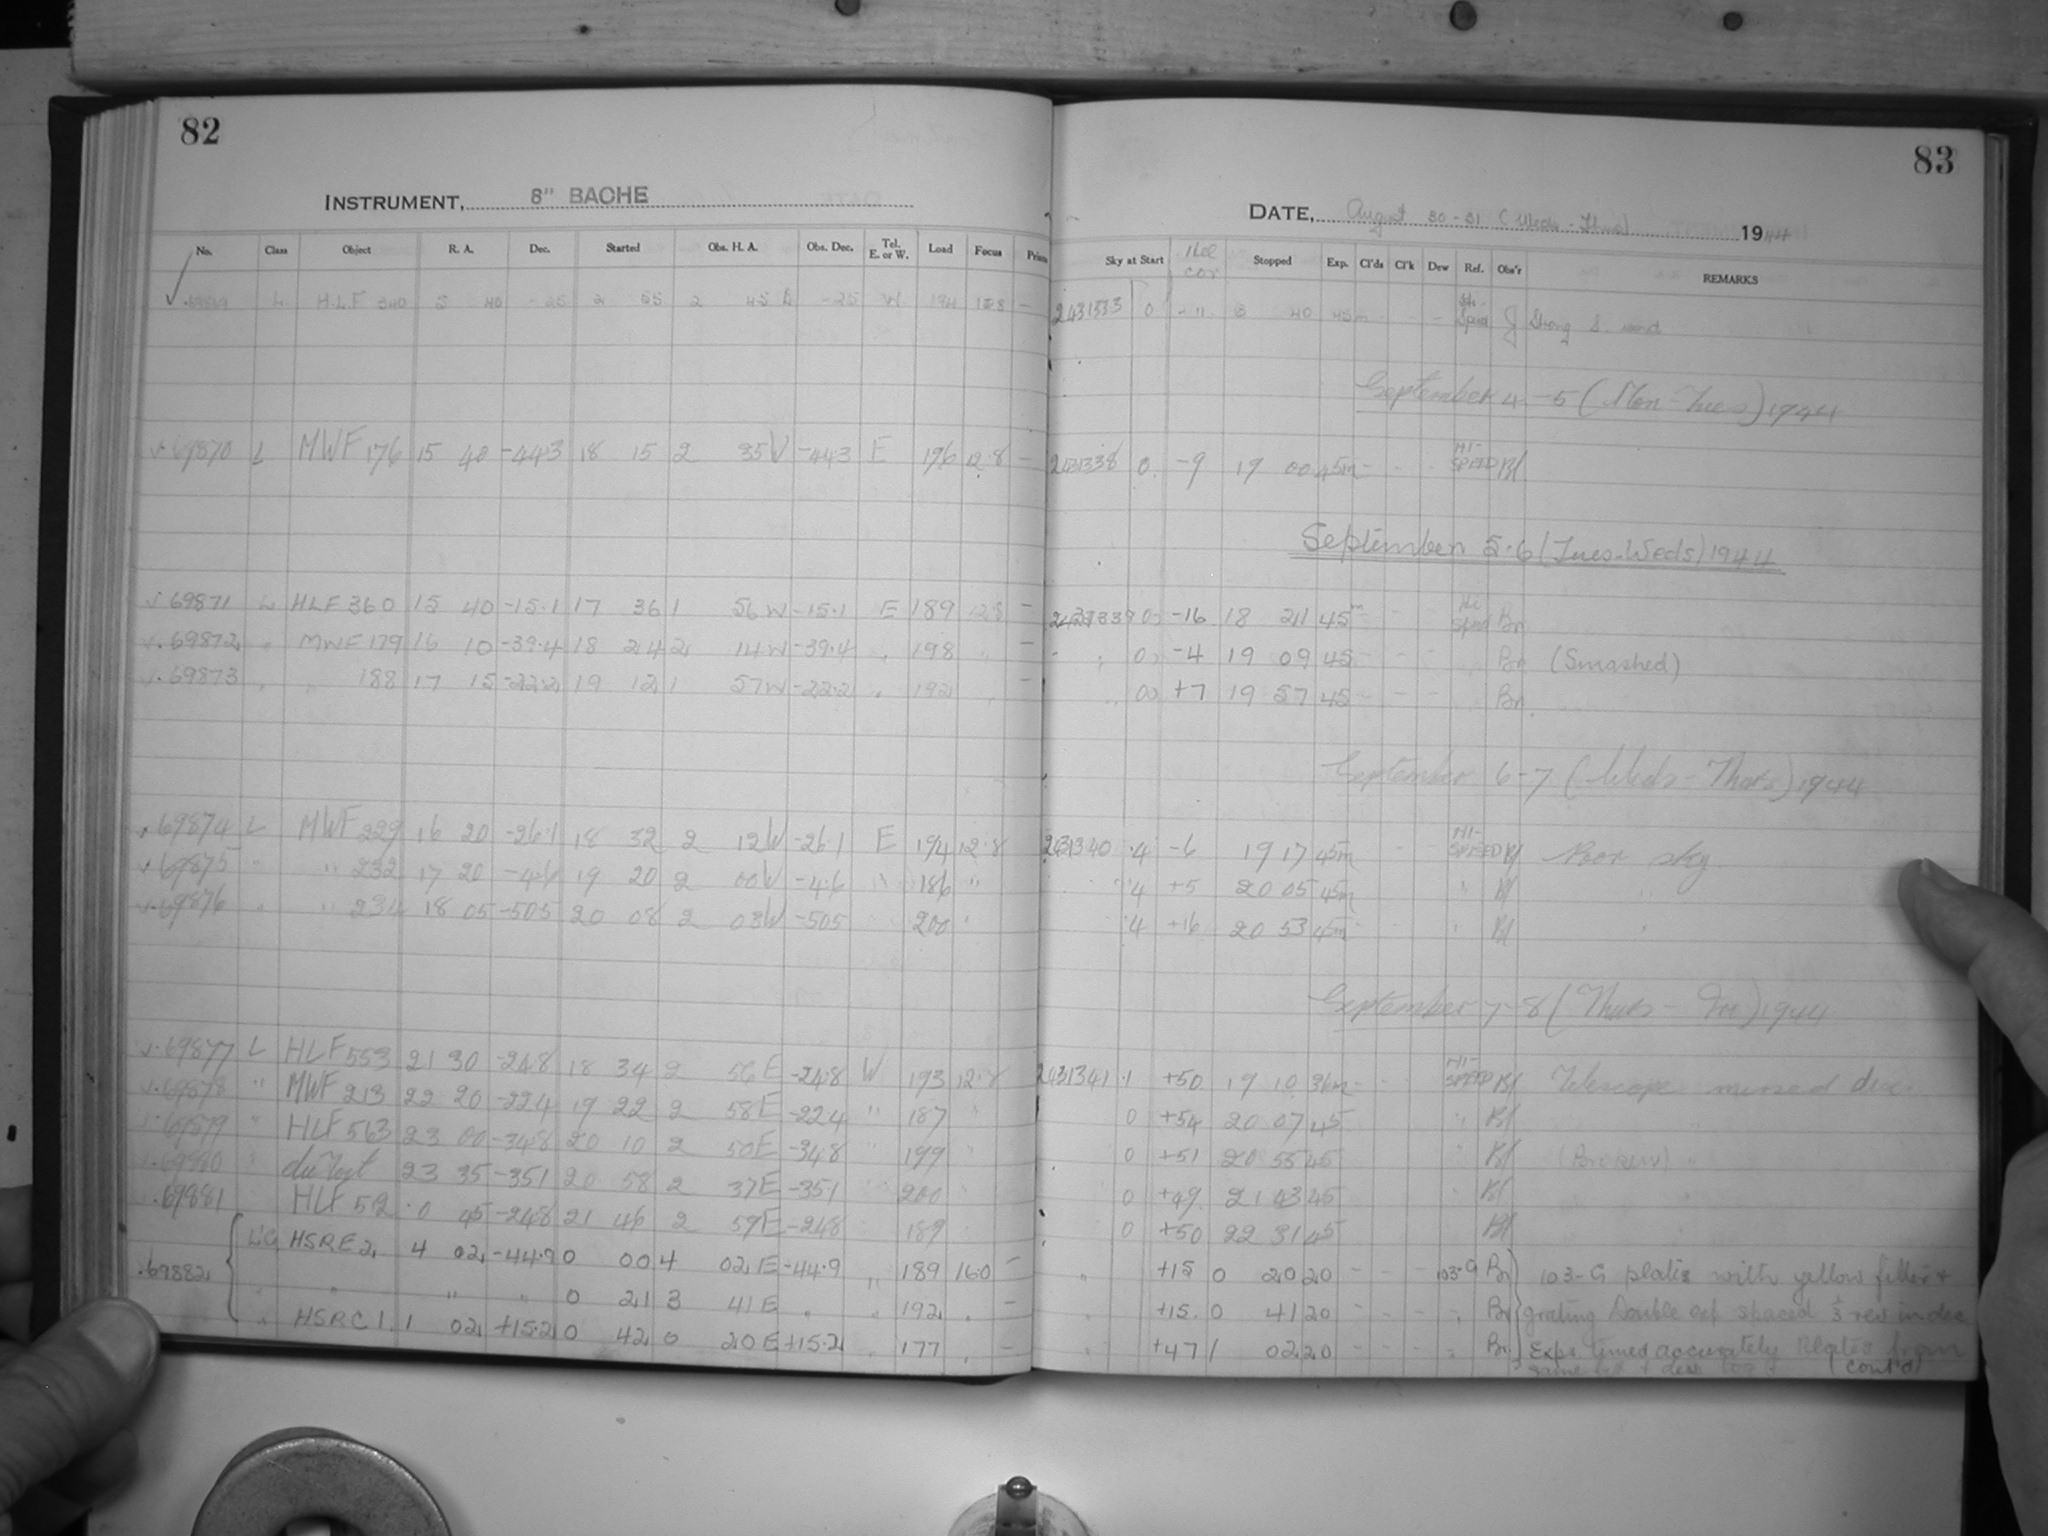 82
INSTRUMENT, 8" BACHE
No. Class Object R. A. Dec. Started Obs. H. A. Obs. Dec. Tel. E. or W. Load Focus Prism
69869 L HLF 340 5 40 -25 2 55 2 45 E -25 W 194 12.8 -
69870 L MWF 176 15 40 -44.3 18 15 2 35 W -44.3 E 196 12.8 -
69871 L HLF 360 15 40 -15.1 17 36 1 56 W -15.1 E 189 12.8 -
69872 " MWF 179 16 10 -39.4 18 24 2 14 W -39.4 " 198 " -
69873 " " 188 17 15 -22.2 19 12 1 57 W -22.2 " 192 " -
69874 L MWF 229 16 20 -26.1 18 32 2 12 W -26.1 E 194 12.8
69875 " " 232 17 20 -4.6 19 20 2 00 W -4.6 " 186 "
69876 " " 234 18 05 -50.5 20 08 2 03 W -50.5 200 "
69877 L HLF 553 21 30 -24.8 18 34 2 56 E -24.8 W 193 12.8
69878 " MWF 213 22 20 -22.4 19 22 2 58 E -22.4 " 187 "
69879 " HLF 563 23 00 -34.8 20 10 2 50 E -34.8 " 199 "
69880 " du Toit 23 35 -35.1 20 58 2 37 E -35.1 " 200 "
69881 HLF 52 0 45 -24.8 21 46 2 59 E -24.8 189
HSRE 2 4 02 -44.9 0 00 4 02 E -44.9 " 189 16.0 -
69882 " " " " 0 21 3 41 E " " 192 " -
" HSRC 1 1 02 +15.2 0 42 0 20 E +15.2 " 177 " -
83
DATE, August 30-31 (Weds-Thurs) 1944
Sky at Start Stopped Exp. Cl'ds Cl'k Dew Ref. Obs'r REMARKS
2431333 0 -11 3 40 45m - - - Hi-Speed J Strong S. wind
September 4-5 (Mon-Tues) 1944
2431338 0 -9 19 00 45m - - - HI-SPEED Bl
September 5-6 (Tues-Weds) 1944
2431339 0 -16 18 21 45m - - Hi Speed Br
" " 0 -4 19 09 45 - - - " Br (Smashed)
" 0 +7 19 57 45 - - - " Br
September 6-7 (Weds-Thurs) 1944
2431340 4 -6 19 17 45m - - HI-SPEED Bl Poor sky
" 4 +5 20 05 45m " Bl "
4 +16 20 53 45m " Bl "
September 7-8 (Thurs-Fri) 1944
2431341 1 +50 19 10 36m - - HI-SPEED Bl Telescope missed dec.
0 +54 20 07 45 " Bl
0 +51 20 55 45 " Bl (Broken)
0 +49 21 43 45 " Bl
0 +50 22 31 45 Bl
" +15 0 20 20 - - - 103-G Br 103-G plates with yellow filter +
" +15 0 41 20 - - - " Br grating Double exp spaced 1/3 rev in dec
" +47 1 02 20 - - - " Br Exps timed accurately Plates from
same box (cont'd)